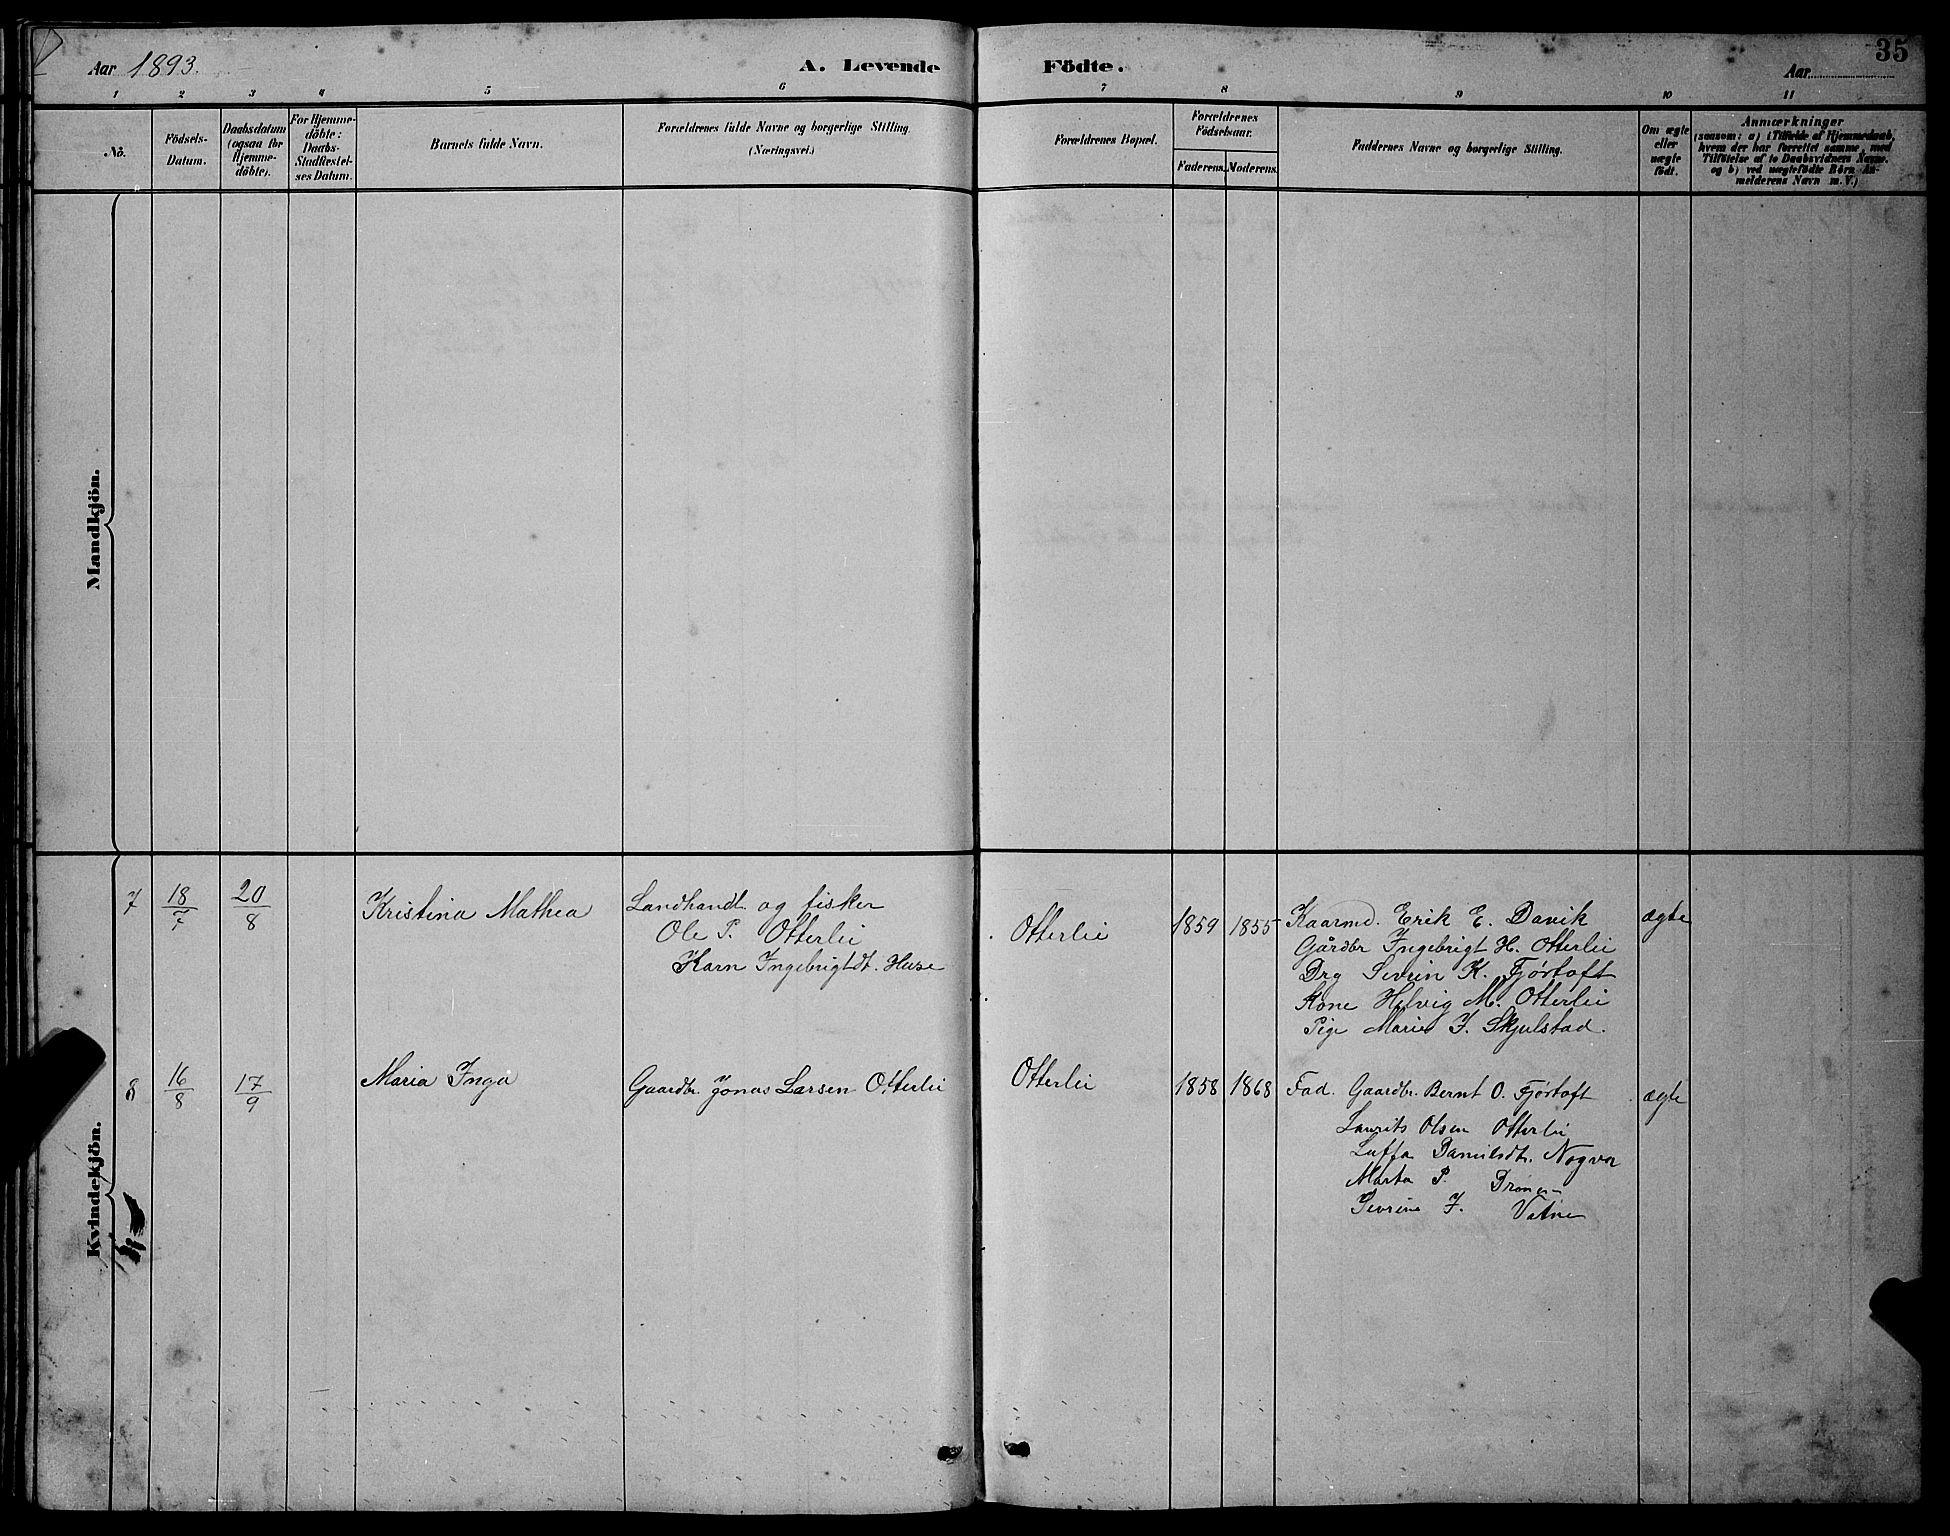 Aar 1893.
A. Levende Födte.
35
Aar
1 2 3 4 5 6 7 8 9 10 11
No.
Födsels-
Datum.
Daabsdatum
(ogsaa for
Hjemme-
döbte).
For Hjemme-
döbte:
Daabs-
Stadfæstel-
ses Datum.
Barnets fulde Navn.
Forældrenes fulde Navne og borgerlige Stilling.
(Næringsvei.)
Forældrenes Bopæl.
Forældrenes
Födselsaar.
Faderens. Moderens.
Faddernes Navne og borgerlige Stilling.
Om ægte
eller
uægte
födt.
Anmærkninger
(saasom: a) i Tilfælde af Hjemmedaab,
hvem der har forrettet samme, med
Tilföielse af to Daabsvidners Navne.
og b) ved uægtefödte Börn An-
melderens Navn m. V.)
Mandkjön.
Kvindekjön.
7 18/7 20/8 Kristina Mathea
Landhandl. og fisker
Ole P. Otterlei
Karn Ingebrigtdt. Huse
Otterlei 1859 1855
Kaarmd. Erik E. Davik
Gårdbr Ingebrigt H. Otterlei
Drg Sivein K. Fjørtoft
Kone Helvig M. Otterlei
Pige Marie I. Skjelstad.
ægte
8 16/8 17/9 Maria Inga
Gaardbr. Jonas Larsen Otterlei
Otterlei 1858 1868
Fad. Gaardbr. Bernt O. Fjørtoft
Laurits Olsen Otterlei
Luffa Danielsdt. Nogva
Marta P.
Sevrine I. Vatne
ægte